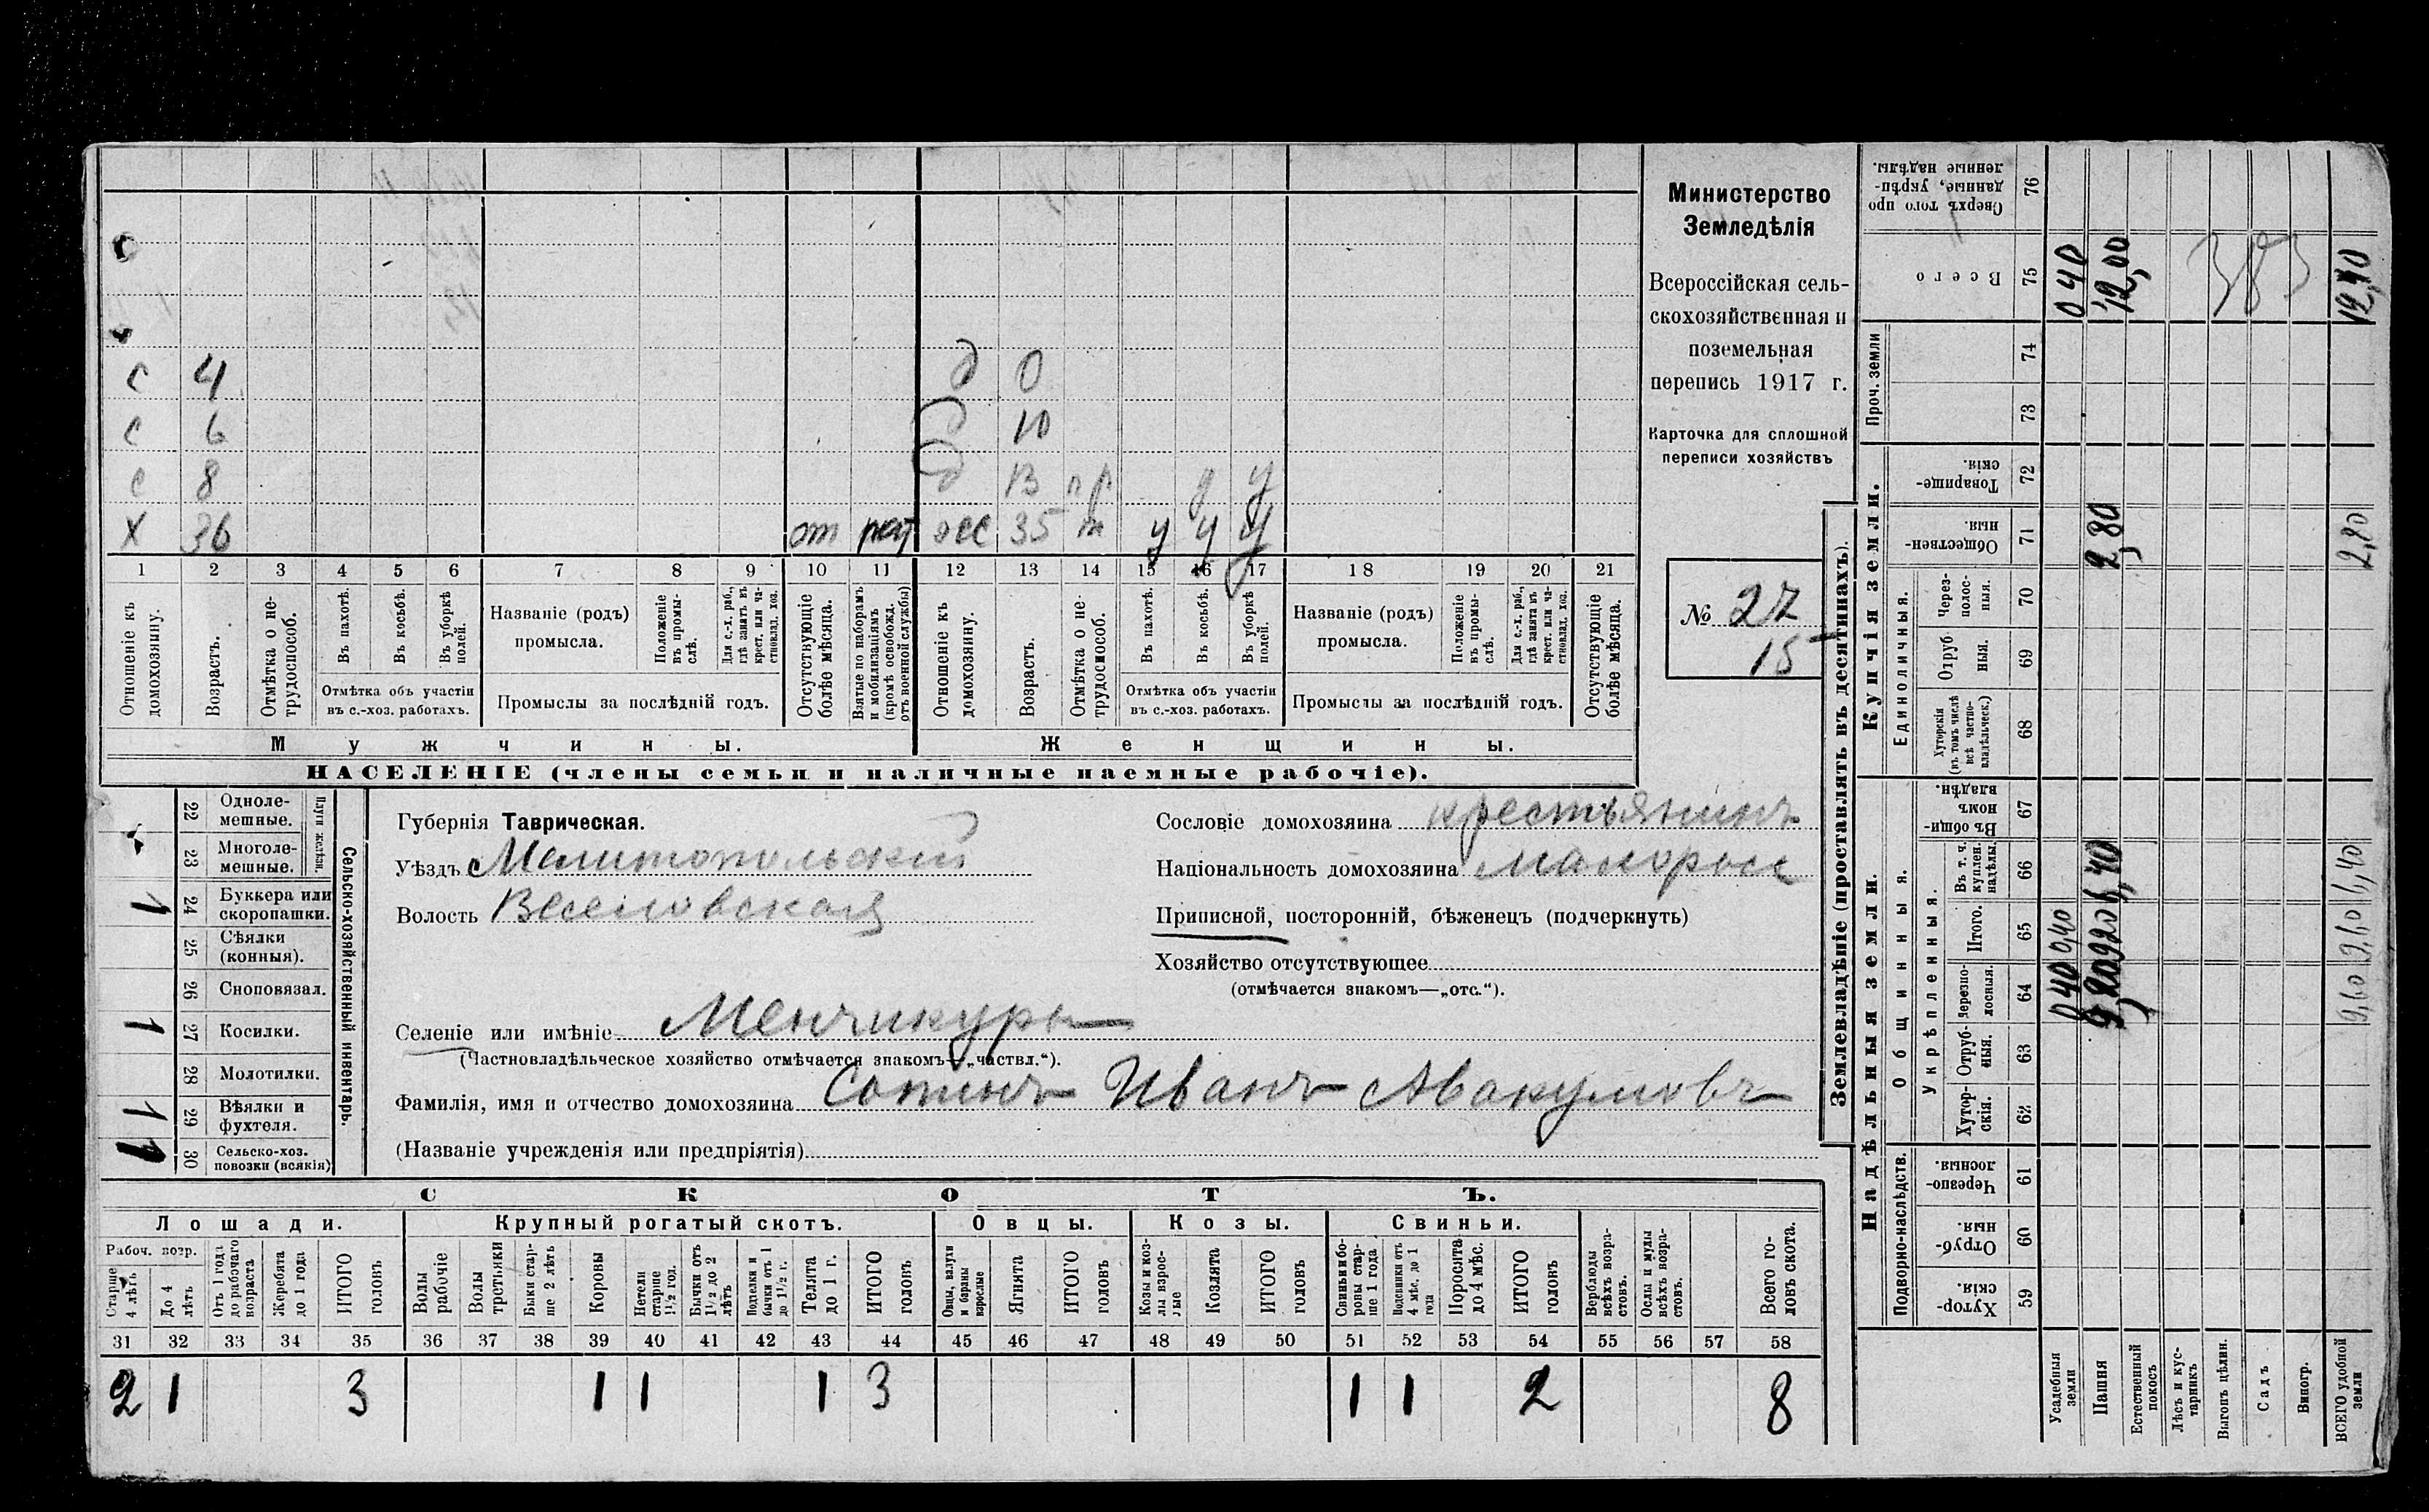 с 4 д 0
с 6 д 10
с 8 д 13 пр у у
х 36 от рат жс 35 ж у у у
1 2 3 4 5 6 7 8 9 10 11 12 13 14 15 16 17 18 19 20 21
Отношеніе къ домохозяину.
Возрастъ.
Отмѣтка о нетрудоспособ.
Въ пахотѣ.
Въ косьбѣ.
Въ уборкѣ полей.
Отмѣтка объ участіи
въ с.-хоз. работахъ.
Названіе (родъ)
промысла.
Положеніе въ промыслѣ.
Для с.-х. раб., гдѣ занятъ въ крест. или частновлад. хоз.
Промыслы за послѣдній годъ.
Отсутствующіе болѣе мѣсяца.
Взятые по наборамъ и мобилизаціямъ (кромѣ освобожд. отъ военной службы)
Отношеніе къ домохозяину.
Возрастъ.
Отмѣтка о нетрудоспособ.
Въ пахотѣ.
Въ косьбѣ.
Въ уборкѣ полей.
Отмѣтка объ участіи
въ с.-хоз. работахъ.
Названіе (родъ)
промысла.
Положеніе въ промыслѣ.
Для с.-х. раб., гдѣ занятъ въ крест. или частновлад. хоз.
Промыслы за послѣдній годъ.
Отсутствующіе болѣе мѣсяца.
Мужчины. Женщины.
НАСЕЛЕНІЕ (члены семьи и наличные наемные рабочіе).
Министерство
Земледѣлія
Всероссійская сель-
скохозяйственная и
поземельная
перепись 1917 г.
Карточка для сплошной
переписи хозяйствъ
№ 27
15
22 Однолемешные.
23 Многолемешные.
Плуги желѣзн.
1 24 Буккера или скоропашки.
25 Сѣялки (конныя).
26 Сноповязал.
1 27 Косилки.
28 Молотилки.
1 29 Вѣялки и фухтеля.
1 30 Сельско-хоз. повозки (всякія)
Сельско-хозяйственный инвентарь.
Губернія Таврическая.
Уѣздъ Мелитопольский
Волость Веселовская
Сословіе домохозяина крестьянинъ
Національность домохозяина малоросс
Приписной, посторонній, бѣженецъ (подчеркнуть)
Хозяйство отсутствующее
(отмѣчается знакомъ—„отс.“).
Селеніе или имѣніе Менчикуры
(Частновладѣльческое хозяйство отмѣчается знакомъ—„частвл.“).
Фамилія, имя и отчество домохозяина Сотинъ Иванъ Авакумовъ
(Названіе учрежденія или предпріятія)
СКОТЪ.
Лошади. Крупный рогатый скотъ. Овцы. Козы. Свиньи.
Рабоч. возр.
Старше 4 лѣтъ
До 4 лѣтъ
Отъ 1 года до рабочаго возраста
Жеребята до 1 года
ИТОГО головъ
Волы рабочіе
Волы третьяки
Быки старше 2 лѣтъ
Коровы
Нетели старше 1½ год.
Бычки отъ 1½ до 2 лѣтъ
Подтелки и бычки отъ 1 до 1½ г.
Телята до 1 г.
ИТОГО головъ
Овцы, валухи и бараны взрослые
Ягнята
ИТОГО головъ
Козы и козлы взрослые
Козлята
ИТОГО головъ
Свиньи и боровы старше 1 года
Подсвинки отъ 4 мѣс. до 1 года
Поросята до 4 мѣс.
ИТОГО головъ
Верблюды всѣхъ возрастовъ.
Ослы и мулы всѣхъ возрастовъ.
Всего головъ скота.
31 32 33 34 35 36 37 38 39 40 41 42 43 44 45 46 47 48 49 50 51 52 53 54 55 56 57 58
2 1 3 1 1 1 3 1 1 2 8
Землевладѣніе (проставлять въ десятинахъ).
Надѣльныя земли. Купчія земли. Проч. земли
Подворно-наслѣдств. Общинныя. Укрѣпленныя. Единоличныя.
Хуторскія. 59
Отрубныя. 60
Черезполосныя. 61
Хуторскія. 62
Отрубныя. 63
Черезполосныя. 64
Итого. 65
Въ т. ч. куплен. надѣлы. 66
Въ общинномъ владѣн. 67
Хуторскія (въ томъ числѣ всѣ частновладѣльческ.) 68
Отрубныя. 69
Черезполосныя. 70
Общественныя. 71
Товарищескія. 72
73
74
Всего 75
Сверхъ того проданные, укрѣпленные надѣлы. 76
Усадебныя земли 0 40 0,40 0 40
Пашня 9,20 9,20 6,40 2,80 12,00
Естественный покосъ
Лѣсъ и кустарникъ
Выгонъ цѣлин.
Садъ
Виногр.
ВСЕГО удобной земли 9,60 9,60 6,40 2,80 12,40
383